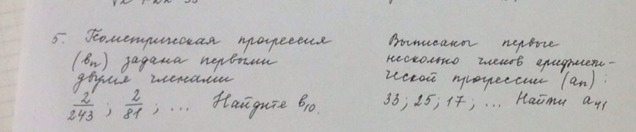 5. Геометрическая прогрессия
(bₙ) задана первыми
двумя членами
2/243 ; 2/81 ; ... Найдите b₁₀.
Выписаны первые
несколько членов арифмети-
ческой прогрессии (aₙ):
33; 25; 17; ... Найти a₄₁